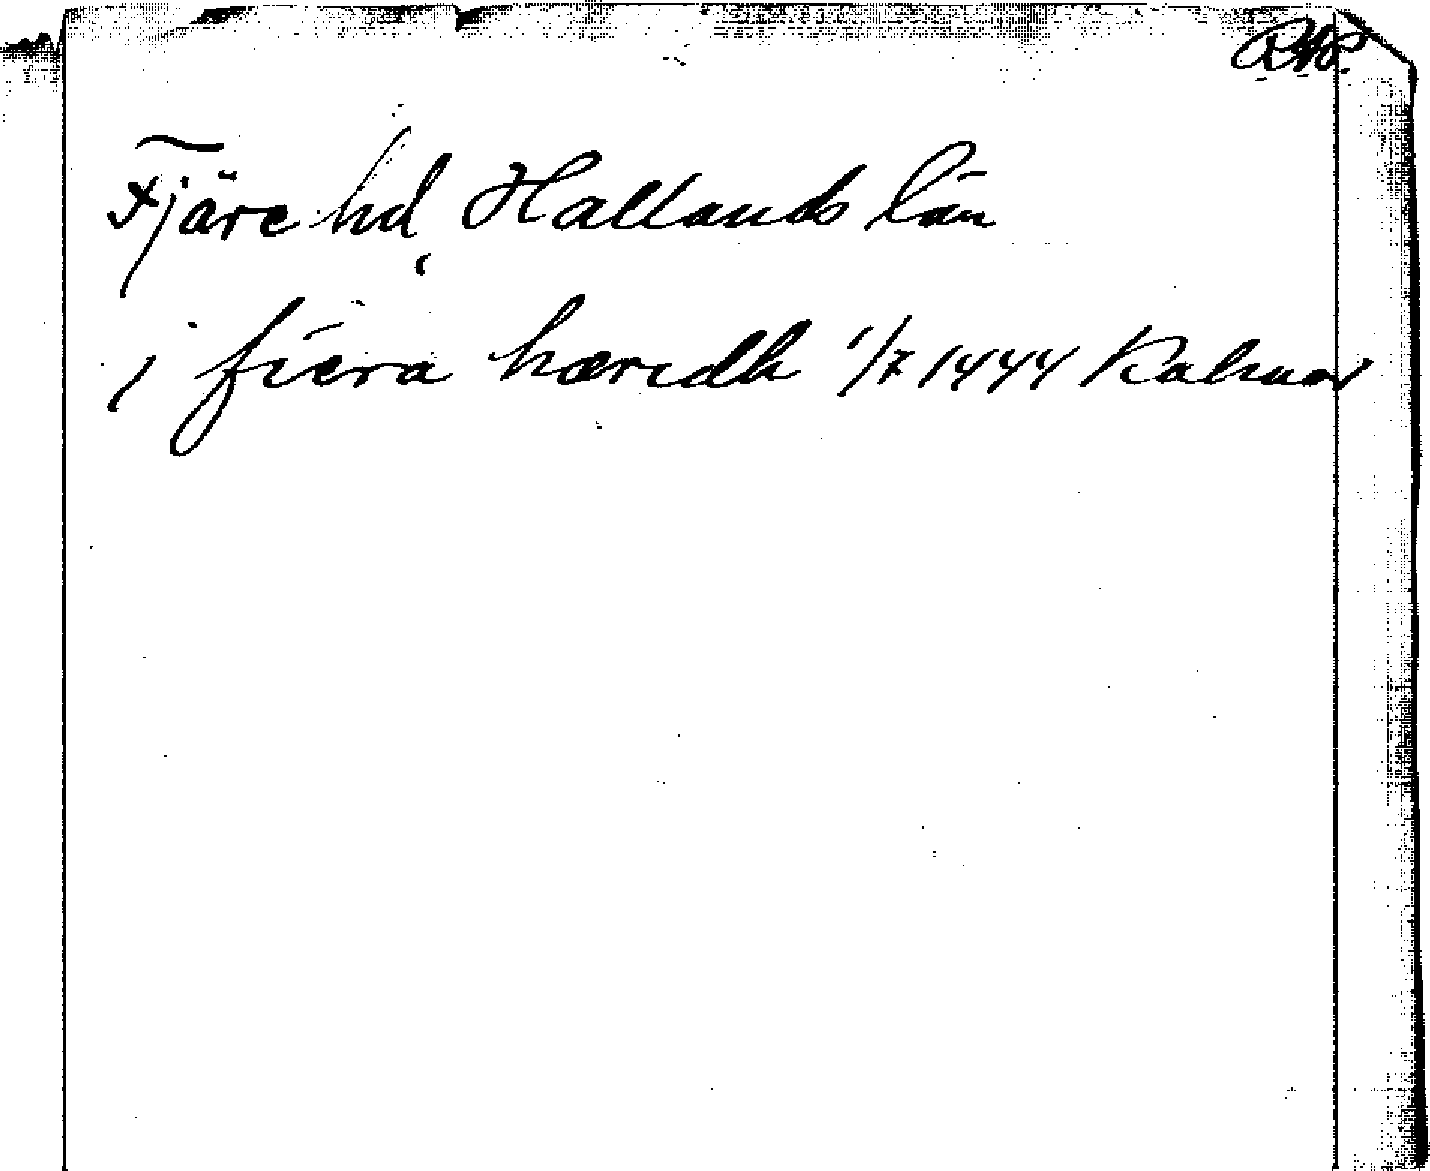 Fjäre hd, Hallands län
i fiera hæridh 1/7 1444 Kalmar